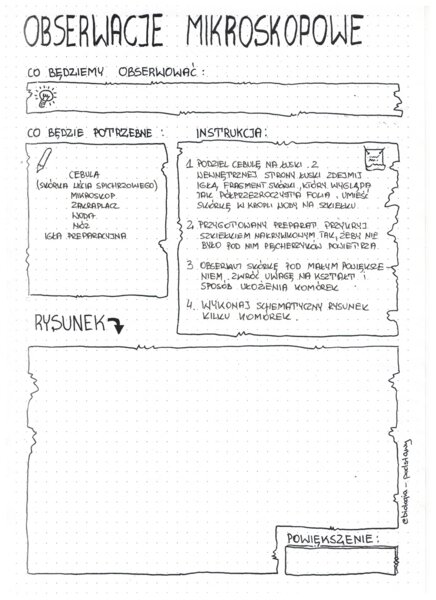 OBSERWACJE MIKROSKOPOWE
CO BĘDZIEMY OBSERWOWAĆ:
CO BĘDZIE POTRZEBNE:
CEBULA
(SKÓRKA LIŚCIA SPICHRZOWEGO)
MIKROSKOP
ZAKRAPLACZ
WODA
NÓŻ
IGŁA PREPARACYJNA
INSTRUKCJA:
1. PODZIEL CEBULĘ NA ŁUSKI. Z
WEWNĘTRZNEJ STRONY ŁUSKI ZDEJMIJ
IGŁĄ, FRAGMENT SKÓRKI, KTÓRY WYGLĄDA
JAK PÓŁPRZEZROCZYSTA FOLIA. UMIEŚĆ
SKÓRKĘ W KROPLI WODY NA SZKIEŁKU
2. PRZYGOTOWANY PREPARAT PRZYKRYJ
SZKIEŁKIEM NAKRYWKOWYM TAK, ŻEBY NIE
BYŁO POD NIM PĘCHERZYKÓW POWIETRZA.
3. OBSERWUJ SKÓRKĘ POD MAŁYM POWIĘKSZE-
NIEM, ZWRÓĆ UWAGĘ NA KSZTAŁT I
SPOSÓB UŁOŻENIA KOMÓREK
4. WYKONAJ SCHEMATYCZNY RYSUNEK
KILKU KOMÓREK.
RYSUNEK
@biologia-podstawy
POWIĘKSZENIE: